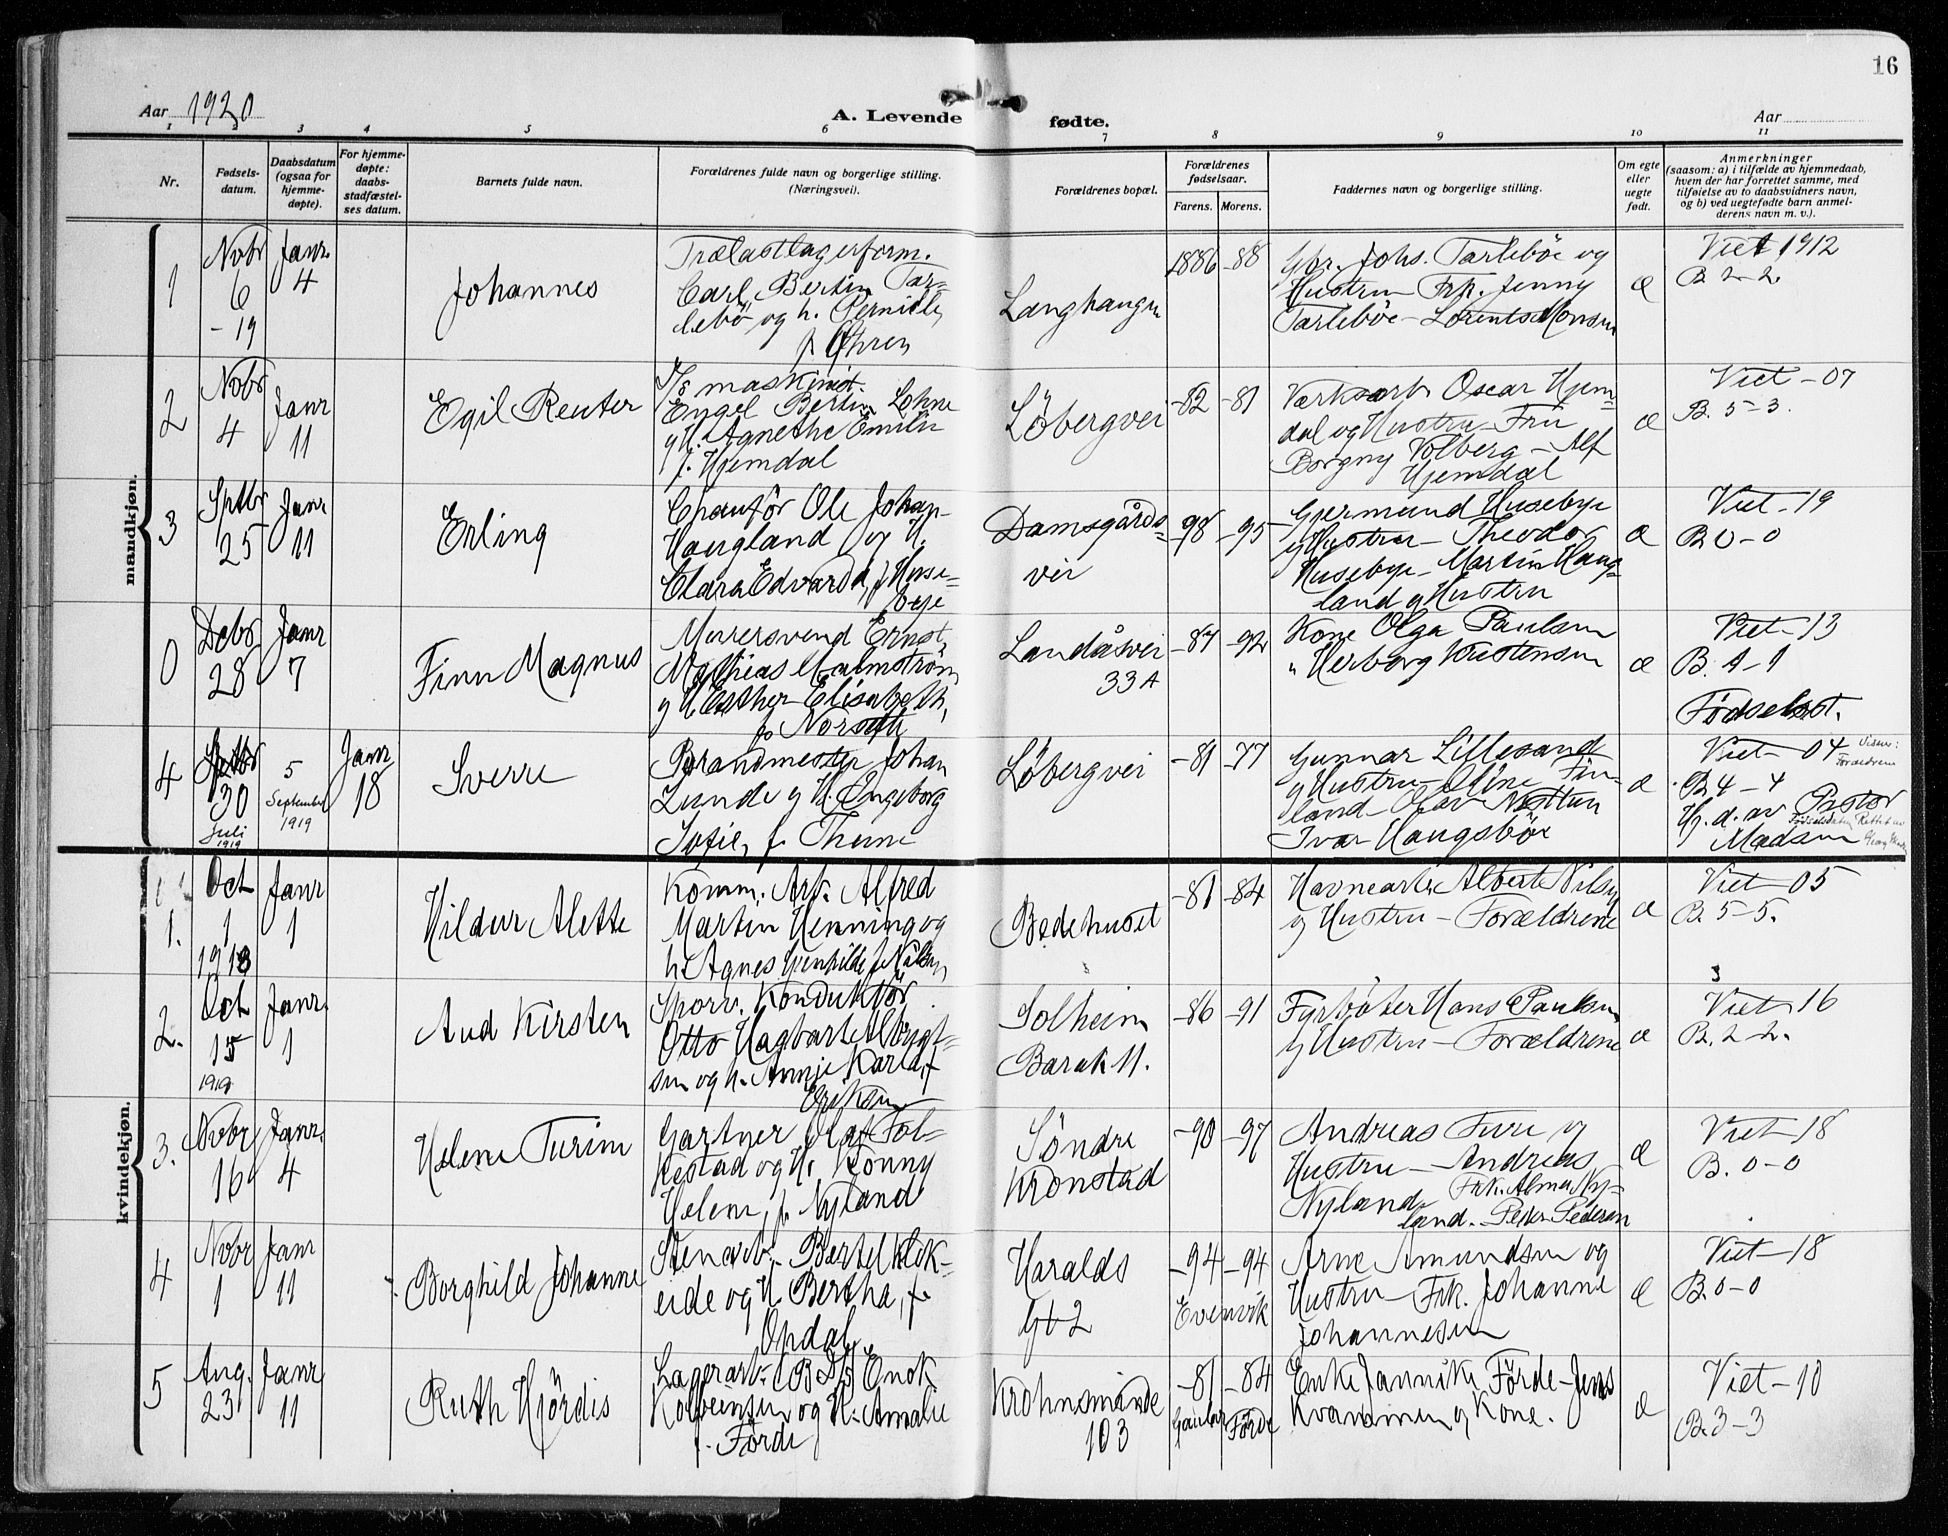 16
Aar 1920
A. Levende fødte.
Aar
1 2 3 4 5 6 7 8 9 10 11
Nr.
Fødsels-
datum.
Daabsdatum
(ogsaa for
hjemme-
døpte).
For hjemme-
døpte:
daabs-
stadfæstel-
ses datum.
Barnets fulde navn.
Forældrenes fulde navn og borgerlige stilling.
(Næringsvei).
Forældrenes bopæl.
Forældrenes
fødselsaar.
Farens. Morens.
Faddernes navn og borgerlige stilling.
Om egte
eller
uegte
født.
Anmerkninger
(saasom: a) i tilfælde av hjemmedaab,
hvem der har forrettet samme, med
tilføielse av to daabsvidners navn,
og b) ved uegtefødte barn anmel-
derens navn m. v.).
mandkjøn.
1
Novbr
6
-19
Janr.
4
Johannes
Trælastlagerform.
Carl Bertin Tar-
lebö og h.
f. Øhren
Langhaugen
1886 -88
Gbr. Johs. Tarleböe og
Hustru Frk. Jenny
Tarleböe - Lorents Monsen
æ
Viet 1912
B 2-2.
2
Novbr
4
Janr
11
Egil Reuter
maskinist.
Engel Bertin Lohne
og H. Agnethe Emilie
f. Hjemdal
Löbergvei
-82 -81
Værksarb. Oscar Hjem-
dal og Hustru - Fru
Borgny Volberg - Alf
Hjemdal
æ
Viet -07
B. 5-3.
3
Sptbr
25
Janr
11
Erling
Chauför Ole Johan
Haugland og H.
Clara Edvarda, f. Huse-
bye
Damsgårds-
vei
-98 -95
Gjermund Husebye
og Hustru - Theodor
Husebye - Martin Haug-
land og Hustru
æ
Viet -19
B 0-0
0
Debr
28
Janr
7
Finn Magnus
Murersvend Ernst
Mathias Malmström
og H. Esther Elisabeth,
f. Norseth
Landåsvei
33A
-87 -92
Kone Olga Paulsen
" Herborg Kristensen
æ
Viet -13
B. 1-1
Fødselsat.
4
Sptbr
30
Juli
1919
5
September
1919
Janr
18
Sverre
Brandmester Johan
Lunde og H. Engeborg
Sofie, f. Thune
Löbergvei
-81 -77
Gunnar Lillesand
og Hustru - Fin-
land - Olav Nøttun
Ivar Haugsböe
æ
Viet - 04
Forældrene
B 4-4
Hj. d. av Pastor
Madsen
kvindekjøn.
1.
Oct
1
1919
Janr
1
Hildur Alette
Komm. Arb. Alfred
Martin Henning og
h. Agnes Gunhilde f. Nilsen
Bedehuset
-81 -84
Havnearb. Albert Nilsen
og Hustru - Forældrene
æ
Viet -05
B. 5-5.
2.
Oct
15
1919
Janr.
1
Aud Kirsten
Sporv. Konduktör
Otto Hagbart Albregt-
sen og h. Annie Karla, f.
Eriksen
Solheim
Barak 11.
-86 -91
Fyrböter Hans Paulsen
og Hustru - Forældrene
æ
3
Viet 16
B. 2-2.
3.
Novbr
16
Janr.
4
Helene Turine
Gartner Olaf Fol-
kestad og H. Konny
Helene, f. Nyland
Söndre
Kronstad
-90 -97
Andreas Ture og
Hustru - Andreas
Nyland Frk. Alma Ny-
land. - Peder Pedersen
æ
Viet 18
B. 0-0
4
Novbr
1
Janr
11
Borghild Johanne
Stenarb. Bertel Klek-
eide og H. Bertha, f.
Opdal
Haralds
Gt 2
-94 -94
Evenvik
Arne Amundsen og
Hustru - Frk. Johanne
Johannesen
æ
Viet -18
B. 0-0
5
Aug.
23
Janr
11
Ruth Hjördis
Lagerarb. (B D S) Enok
Kolbeinsen og H. Amalie
f. Förde
Krohnsminde
103
-81 -84
Gaular Förde
Enke Jannike Förde - Jens
Kvammen og Kone.
æ
Viet -10
B. 3-3